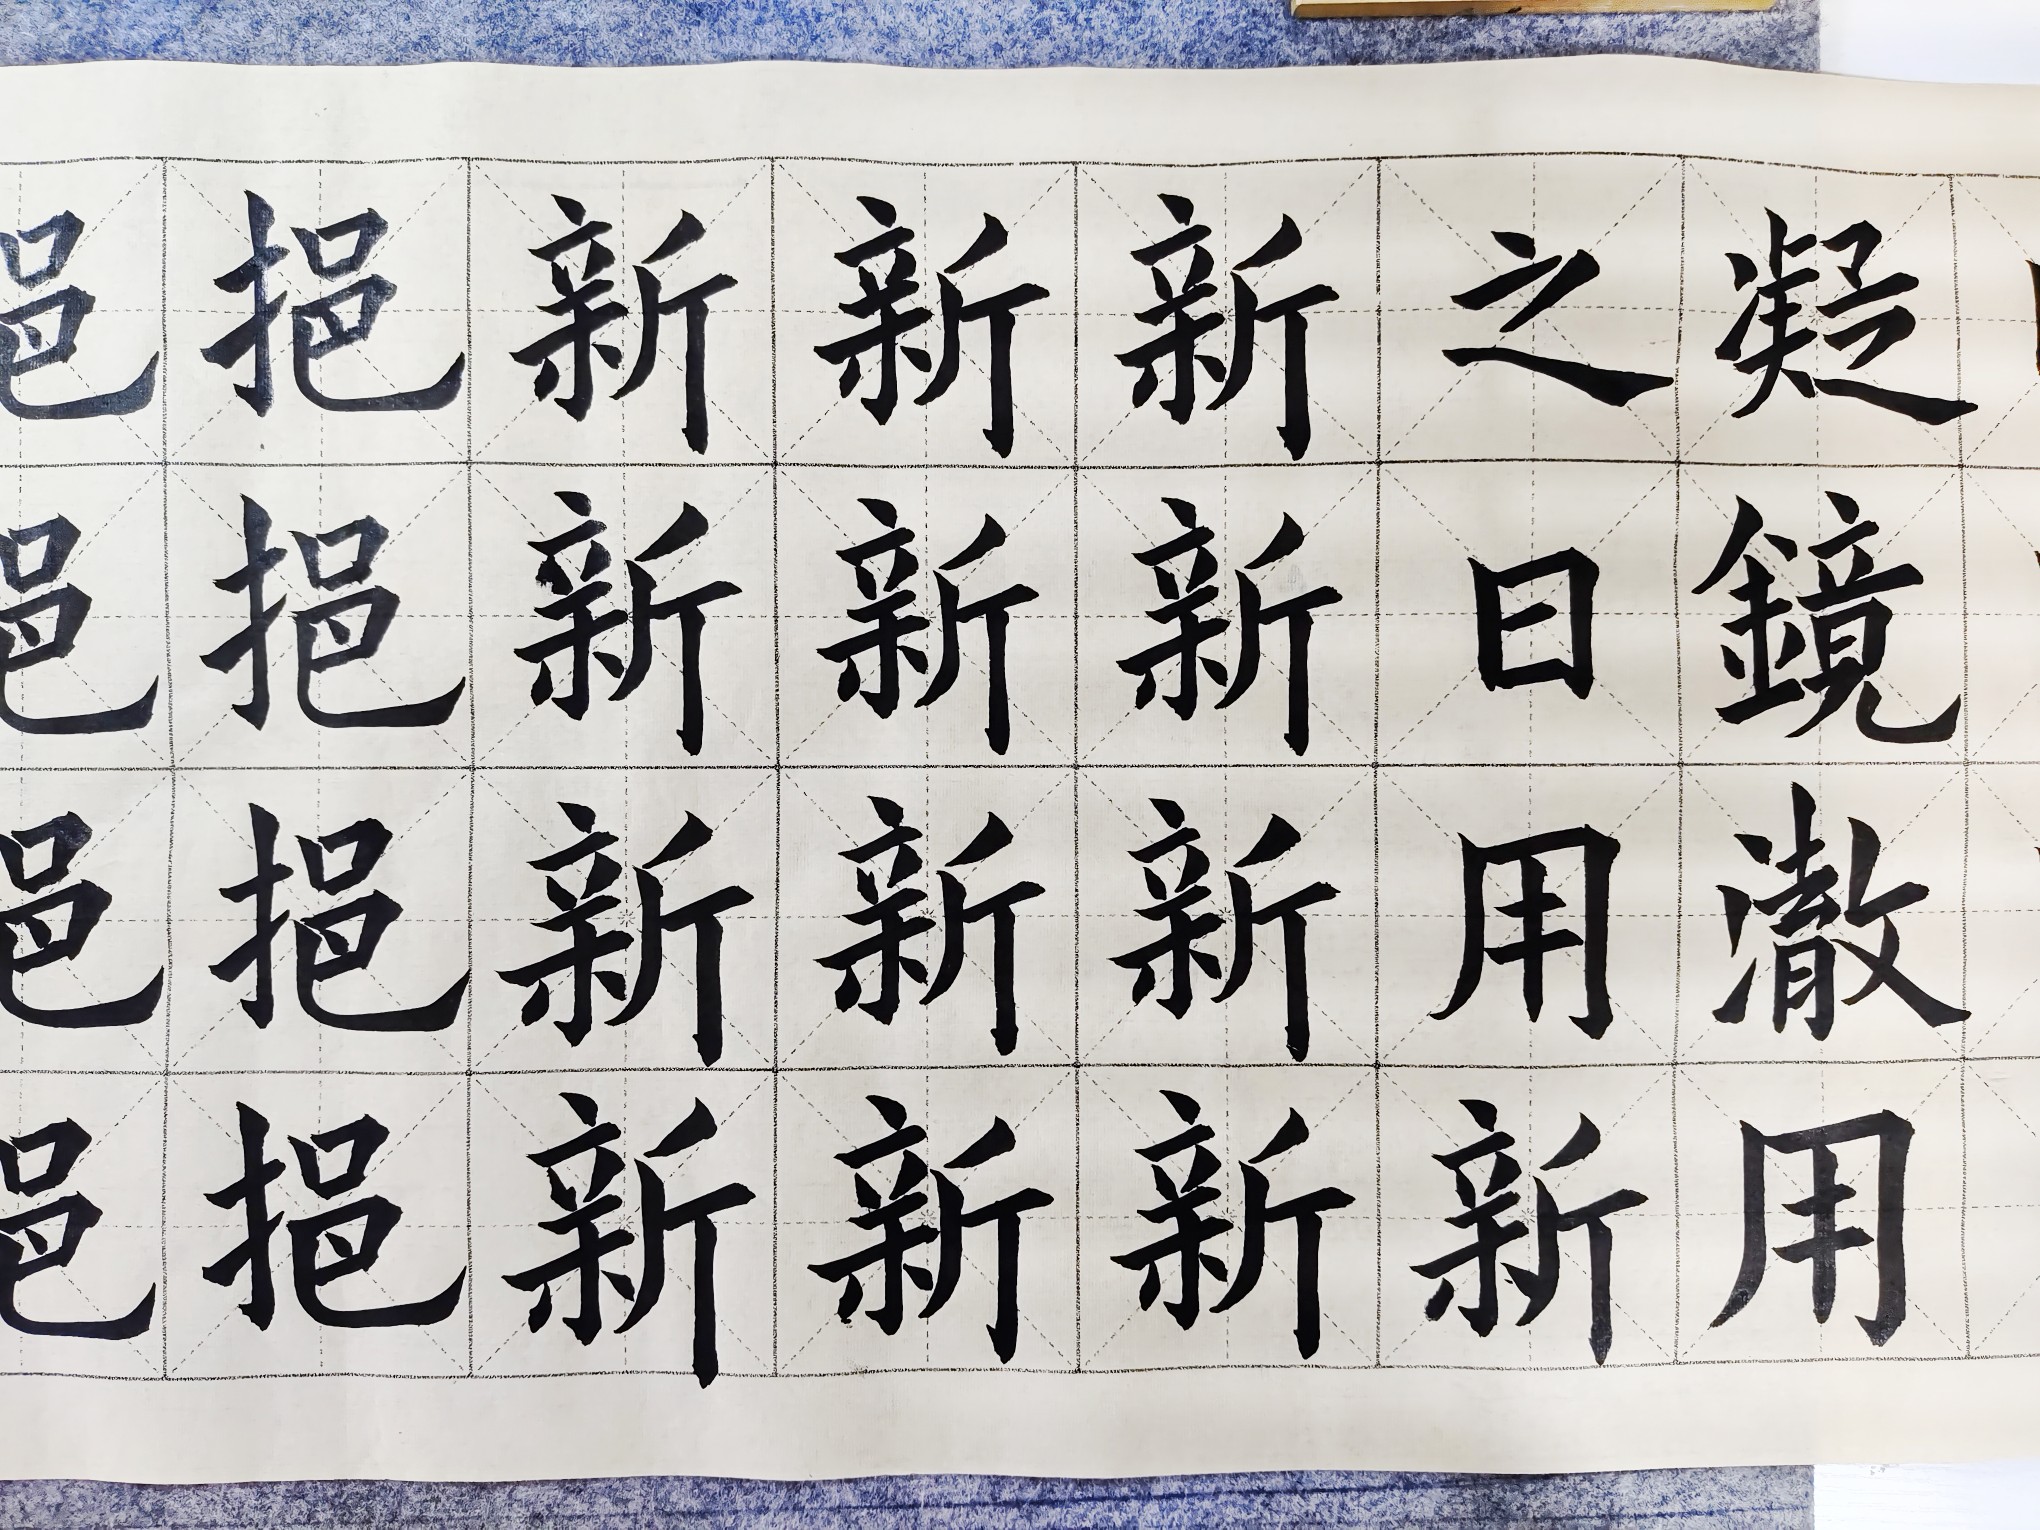 凝鏡澈用
之日用新
新新新新
新新新新
新新新新
挹挹挹挹
挹挹挹挹